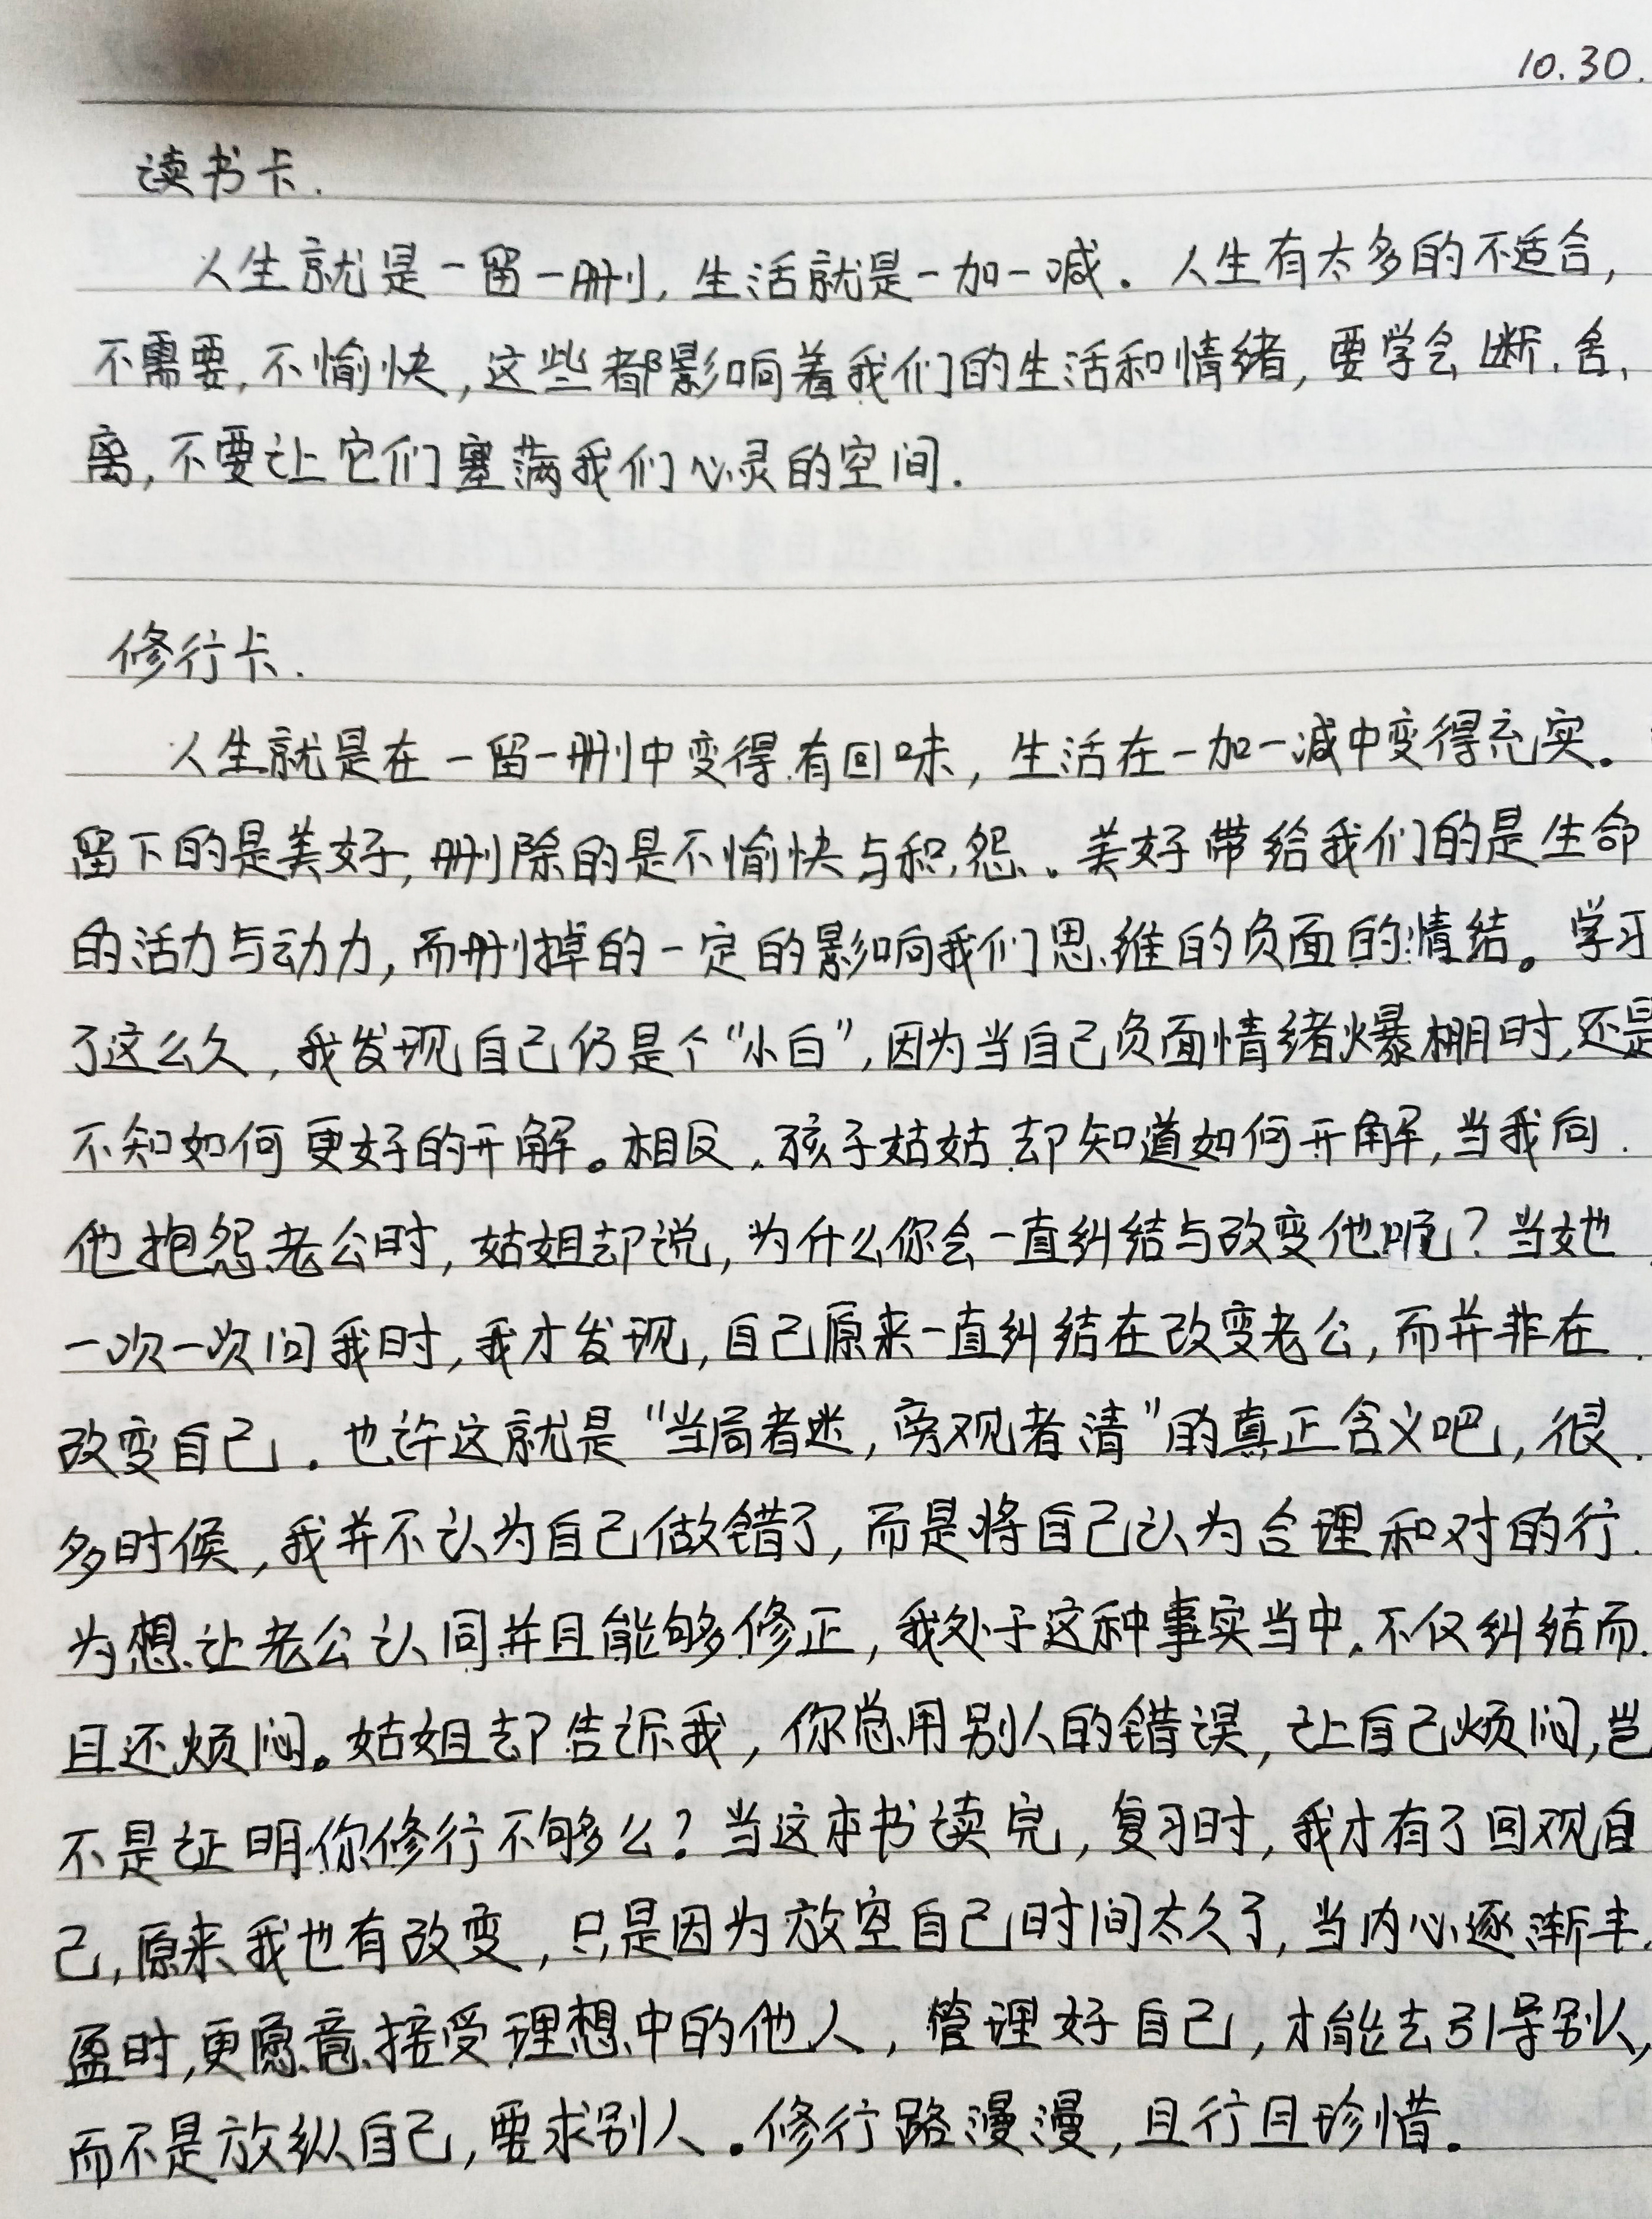 10.30.
读书卡.
人生就是一留一删，生活就是一加一喊．人生有太多的不适合，
不需要，不愉快，这些都影响着我们的生活和情绪，要学会断、舍、
离，不要让它们塞满我们心灵的空间．
修行卡.
人生就是在一留一删中变得有回味，生活在一加一减中变得充实。
留下的是美好，删除的是不愉快与积怨。美好带给我们的是生命
的活力与动力，而删掉的一定的影响我们思维的负面的情结。学习
了这么久，我发现自己仍是个“小白”，因为当自己负面情绪爆棚时，还是
不知如何更好的开解。相反，孩子姑姑却知道如何开解，当我向
他抱怨老公时，姑姐却说，为什么你会一直纠结与改变他呢？当她
一次一次问我时，我才发现，自己原来一直纠结在改变老公，而并非在
改变自己．也许这就是“当局者迷，旁观者清”的真正含义吧，很
多时候，我并不认为自己做错了，而是将自己认为合理和对的行
为想让老公认同并且能够修正，我处于这种事实当中，不仅纠结而
且还烦闷。姑姐却告诉我，你总用别人的错误，让自己烦闷，岂
不是证明你修行不够么？当这本书读完，复习时，我才有了回观自
己，原来我也有改变，只是因为放空自己时间太久了，当内心逐渐丰
盈时，更愿意接受理想中的他人，管理好自己，才能去引导别人，
而不是放纵自己，要求别人．修行路漫漫，且行且珍惜．